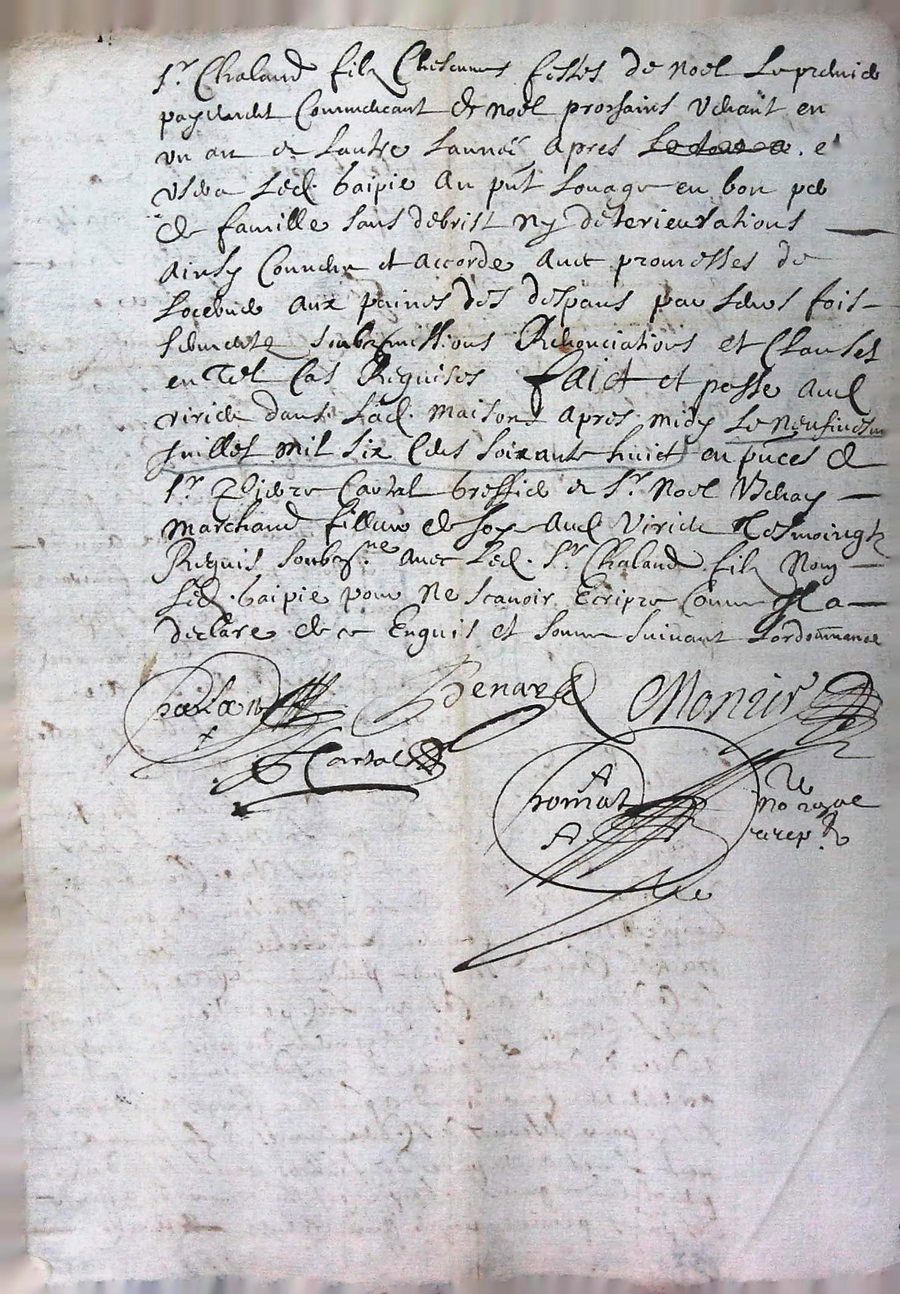 sr Chaland filz Chescunes festes de noel Le premier
payement Commencant de noel prochains venant en
un an et Lautre Lannee apres. et
usera Led. baipie du pnt Louage en bon per
de famille sans debrist ny deterieurations
Ainsy Convenu et accorde avec promesses de
aux paines des despans par Leurs fois
sermentz soubzmissions Renonciations et Clauses
en Tel Cas Requises faict et passe aud
virieu dans Lad. maison apres midy Le neufiesme
juillet mil six Cens soixante huict en pnces de
sr Pierre Cartal greffier et sr Noel
marchand de aud virieu Tesmoingtz
Requis soubzsne avec Led. sr Chaland filz Non
Led. baipie pour ne scavoir Ecripre Comme Il a
declare de ce Enquis et somme suivant Lordonnance
Chaland
Cartal
no royal
recep.